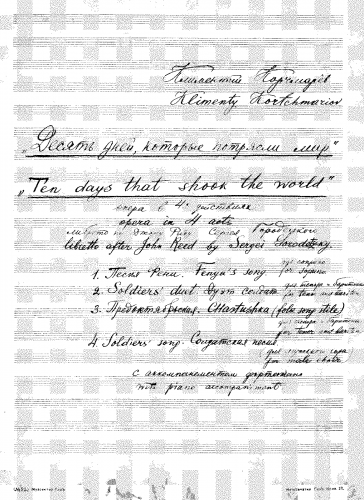 Климентий Корчмарёв
Klimenty Kortchmariov
„Десять дней, которые потрясли мир"
„Ten days that shook the world"
опера в 4х действиях
opera in 4 acts
либретто по Джону Риду Сергея Городецкого
libretto after John Reed by Sergei Gorodetzky.
1. Песня Fenya's song
для сопрано
for Soprano
2. Soldiers' duet Дуэт солдат
для тенора и баритона
for tenor and baritone
3. Предоктябрьская. Chastushka (folk song stile)
для тенора и баритона
for tenor and baritone
4 Soldiers' song. Солдатская песня
для мужского хора
for male choir
с аккомпанементом фортепиано
with piano accompaniment.